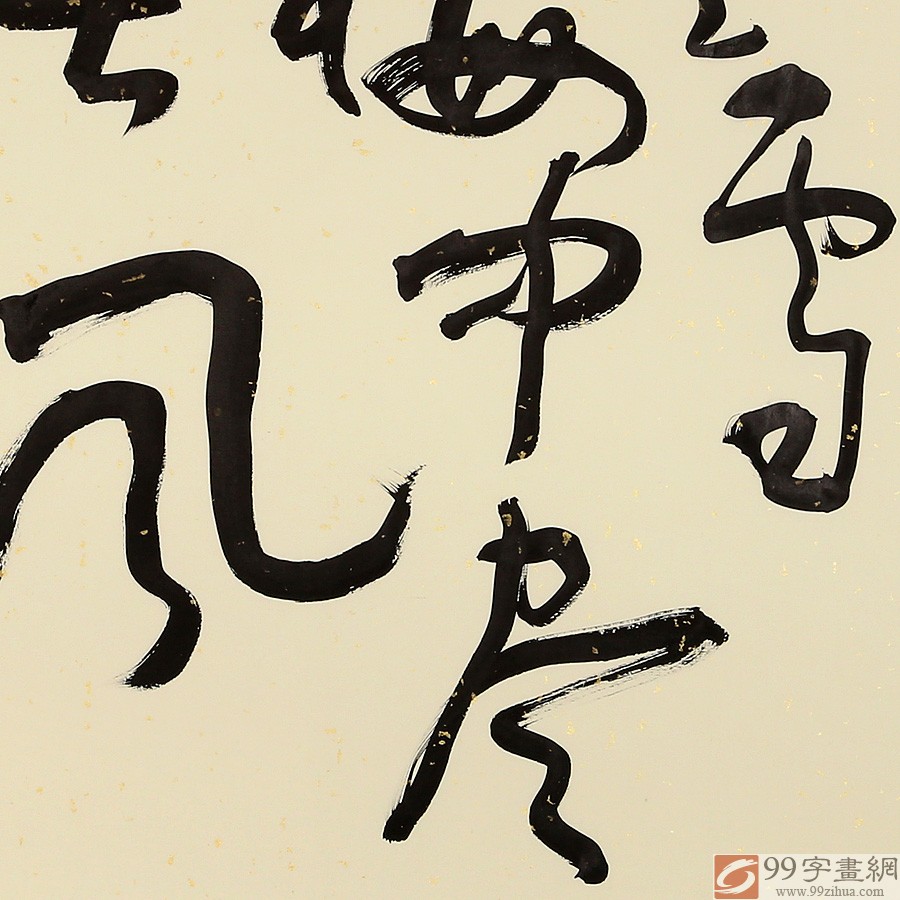 雪
梅中尽
风
99字畫網
www.99zihua.com